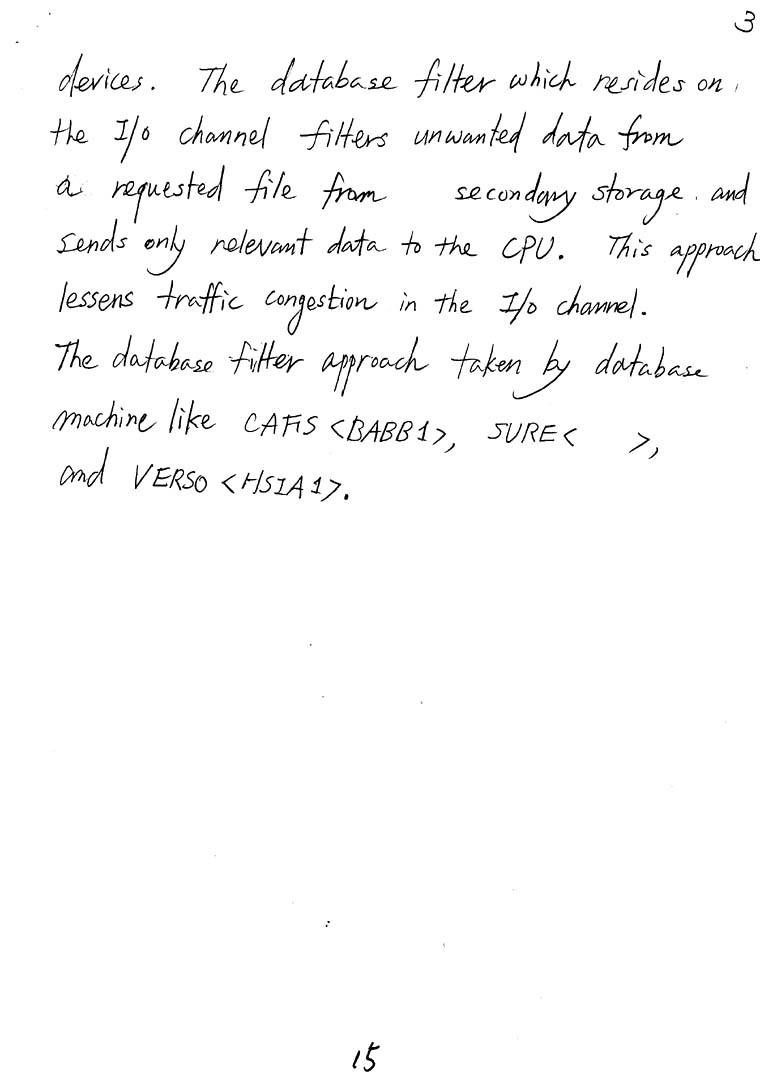 3
devices. The database filter which resides on
the I/o channel filters unwanted data from
a requested file from secondary storage and
sends only relevant data to the CPU. This approach
lessens traffic congestion in the I/o channel.
The database filter approach taken by database
machine like CAFIS <BABB1>, SURE< >,
and VERSO <HSIA1>.
15